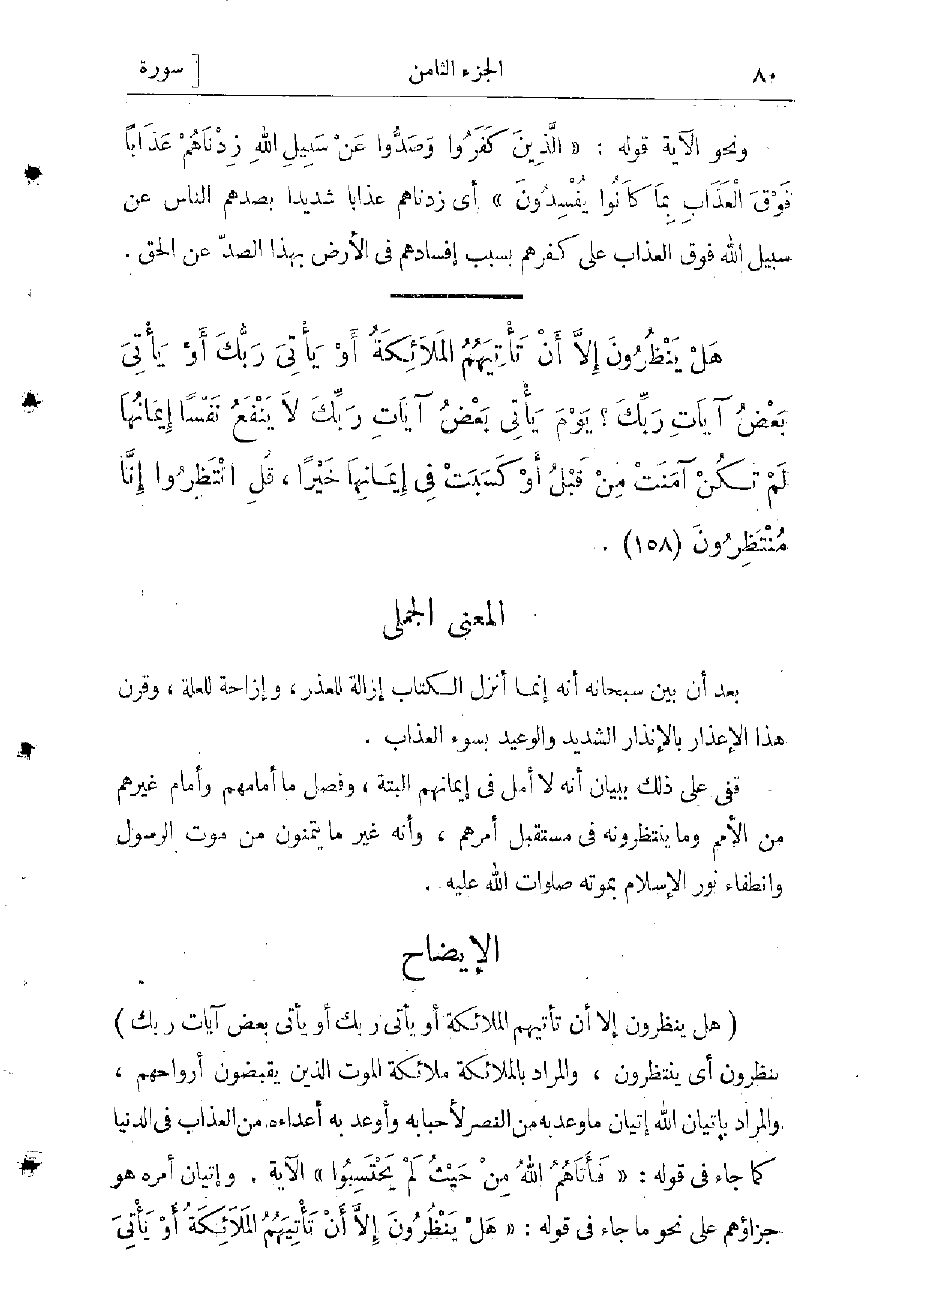 ٨٠ الجزء الثامن [ سورة
ونحو الآية قوله : « الَّذِينَ كَفَرُوا وَصَدُّوا عَنْ سَبِيلِ اللهِ زِدْنَاهُمْ عَذَابًا
فَوْقَ الْعَذَابِ بِمَا كَانُوا يُفْسِدُونَ » أى زدناهم عذابا شديدا بصدهم الناس عن
سبيل الله فوق العذاب على كفرهم بسبب إفسادهم فى الأرض بهذا الصدّ عن الحق .
هَلْ يَنْظُرُونَ إِلاَّ أَنْ تَأْتِيَهُمُ المَلاَئِكَةُ أَوْ يَأْتِىَ رَبُّكَ أَوْ يَأْتِىَ
بَعْضُ آيَاتِ رَبِّكَ ؟ يَوْمَ يَأْتِى بَعْضُ آيَاتِ رَبِّكَ لاَ يَنْفَعُ نَفْسًا إِيمَانُهَا
لَمْ تَكُنْ آمَنَتْ مِنْ قَبْلُ أَوْ كَسَبَتْ فِى إِيمَانِهَا خَيْرًا ، قُلِ انْتَظِرُوا إِنَّا
مُنْتَظِرُونَ (١٥٨) .
المعنى الجملى
بعد أن بين سبحانه أنه إنما أنزل الكتاب إزالة للعذر ، وإزاحة للعلة ، وقرن
هذا الإعذار بالإنذار الشديد والوعيد بسوء العذاب .
قفى على ذلك ببيان أنه لا أمل فى إيمانهم البتة ، وفصل ما أمامهم وأمام غيرهم
من الأمم وما ينتظرونه فى مستقبل أمرهم ، وأنه غير ما يتمنون من موت الرسول
وانطفاء نور الإسلام بموته صلوات الله عليه .
الإيضاح
( هل ينظرون إلا أن تأتيهم الملائكة أو يأتى ربك أو يأتى بعض آيات ربك )
ينظرون أى ينتظرون ، والمراد بالملائكة ملائكة الموت الذين يقبضون أرواحهم ،
والمراد بإتيان الله إتيان ماوعد به من النصر لأحبابه وأوعد به أعداءه من العذاب فى الدنيا
كما جاء فى قوله : « فَأَتَاهُمُ اللهُ مِنْ حَيْثُ لَمْ يَحْتَسِبُوا » الآية . وإتيان أمره هو
جزاؤهم على نحو ما جاء فى قوله : « هَلْ يَنْظُرُونَ إِلاَّ أَنْ تَأْتِيَهُمُ المَلاَئِكَةُ أَوْ يَأْتِىَ